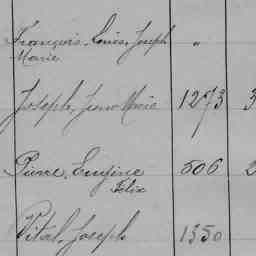 François, Louis, Joseph "
Marie
Joseph, Jean Marie 1273 3
Pierre, Eugène 506 2
Félix
Vital, Joseph 1350